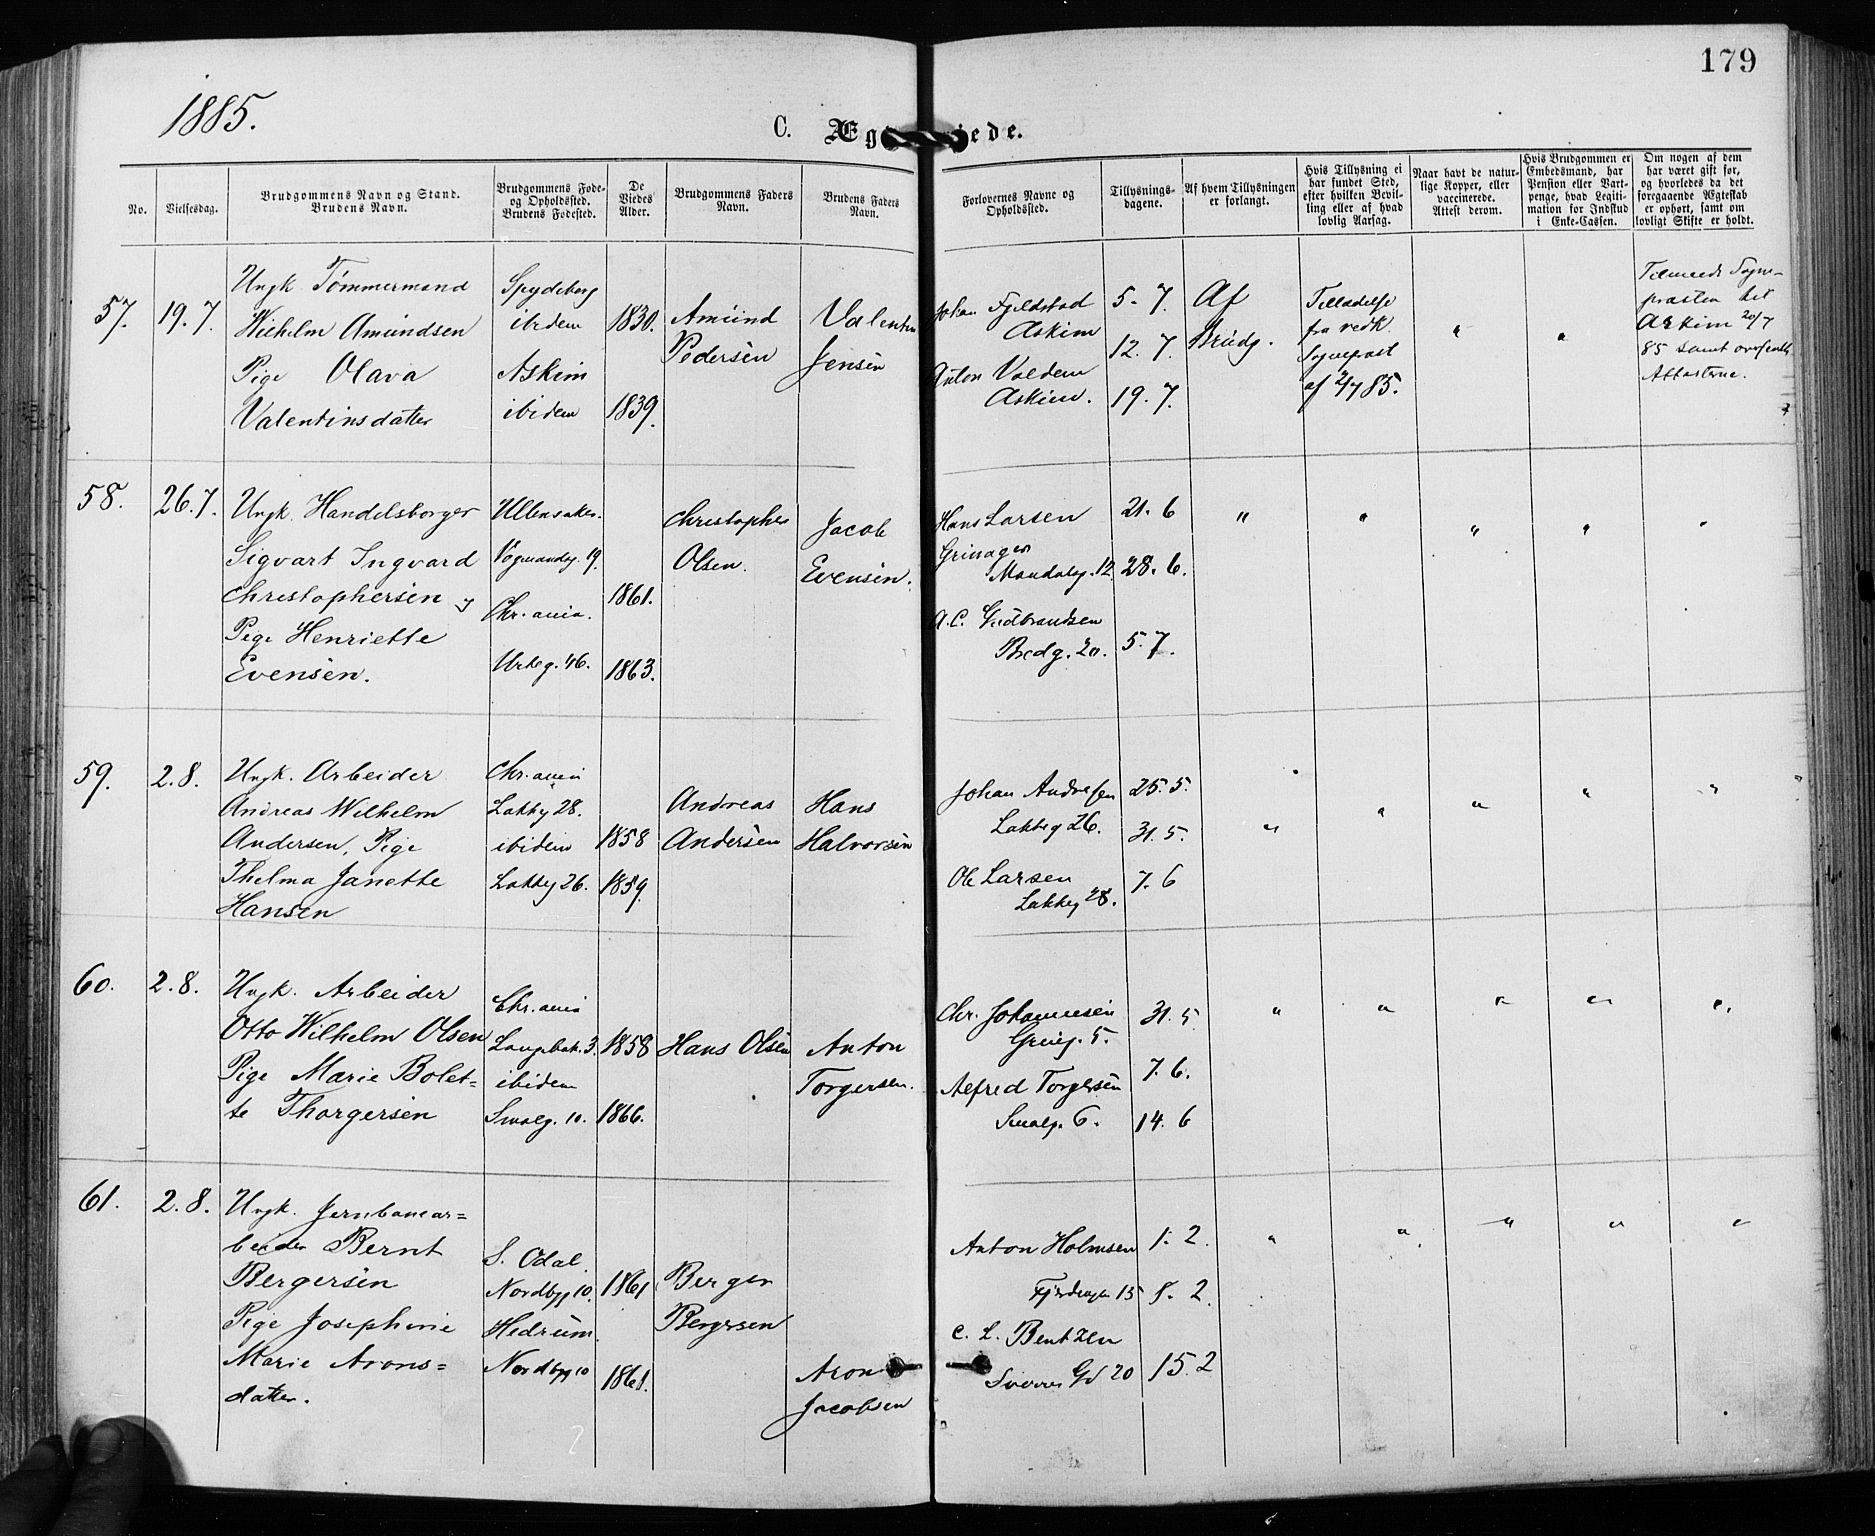 179
1885.
C. Æg iede.
No.
Vielsesdag.
Brudgommens Navn og Stand.
Brudens Navn.
Brudgommens Føde-
og Opholdssted.
Brudens Fødested.
De
Viedes
Alder.
Brudgommens Faders
Navn.
Brudens Faders
Navn.
Forlovernes Navne og
Opholdssted.
Tillysnings-
dagene.
Af hvem Tillysningen
er forlangt.
Hvis Tillysning ei
har fundet Sted,
efter hvilken Bevil-
ling eller af hvad
lovlig Aarsag.
Naar havt de natur-
lige Kopper, eller
vaccinerede.
Attest derom.
Hvis Brudgommen er
Embedsmand, har
Pension eller Vart-
penge, hvad Legiti-
mation for Indskud
i Enke-Cassen.
Om nogen af dem
har været gift før,
og hvorledes da det
foregaaende Ægteskab
er ophørt, samt om
lovligt Skifte er holdt.
57.
19. 7.
Ungk Tømmermand
Wilhelm Amundsen
Pige Olava
Valentinsdatter
Spydeberg
ibidem
Askim
ibidem
1830.
1839.
Amund
Pedersen
Valentin
Jensen
Johan Fjeldstad
Askim
Anton Valdem
Askim.
5. 7.
12. 7.
19. 7.
Af
Brudg.
Tilladelse
fra vedk.
Sognepræst
af 2/7 85.
"
"
Tilmeldt Sogne-
præsten til
Askim 20/7
85 samt
Attesterne.
58.
26. 7.
Ungk. Handelsborger
Sigvart Ingvard
Christophersen
Pige Henriette
Evensen.
Ullensaker.
Vognmandsg. 19.
Chr.ania.
Urteg. 46.
1861.
1863.
Christopher
Olsen.
Jacob
Evensen.
Hans Larsen
Grinager
Mandalsg. 12
A. C. Gudbrandsen
Bredg. 20.
21. 6
28. 6.
5. 7.
"
"
"
"
"
59.
2. 8.
Ungk. Arbeider
Andreas Wilhelm
Andersen, Pige
Thelma Janette
Hansen
Chr.ania
Lakkeg 28.
ibidem
Lakkeg 26.
1858
1859.
Andreas
Andersen
Hans
Halvorsen
Johan Andresen
Lakkeg 26.
Ole Larsen
Lakkeg 28.
25. 5.
31. 5.
7. 6
"
"
"
"
"
60.
2. 8.
Ungk. Arbeider
Otto Wilhelm Olsen
Pige Marie Bolet=
te Thorgersen
Chr.ania
Langbak. 3.
ibidem
Smalg. 10.
1858
1866.
Hans Olsen
Anton
Torgersen.
Chr. Johannesen
Grüng. 5.
Alfred Torgersen
Smalg. 6.
31. 5.
7. 6.
14. 6
"
"
"
"
"
61.
2. 8.
Ungk. Jernbanear=
beider Bernt
Bergersen
Pige Josephine
Marie Arons=
datter.
S. Odal.
Nordbyg 10.
Hedrum.
Nordbyg 10
1861
1861.
Berger
Bergersen
Aron
Jacobsen
Anton Holmsen
15
C. L. Bentzen
Sverres Gd 20
1. 2.
8. 2.
15. 2
"
"
"
"
"